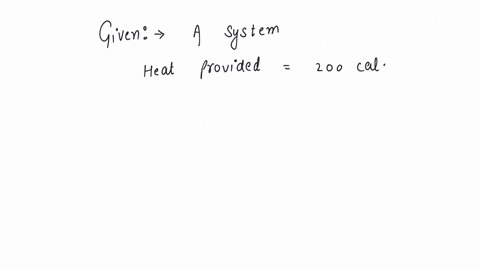 Given:→ A system
Heat provided = 200 cal.